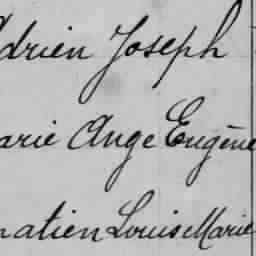 drien Joseph
arie Ange Eugène
natien Louis Marie